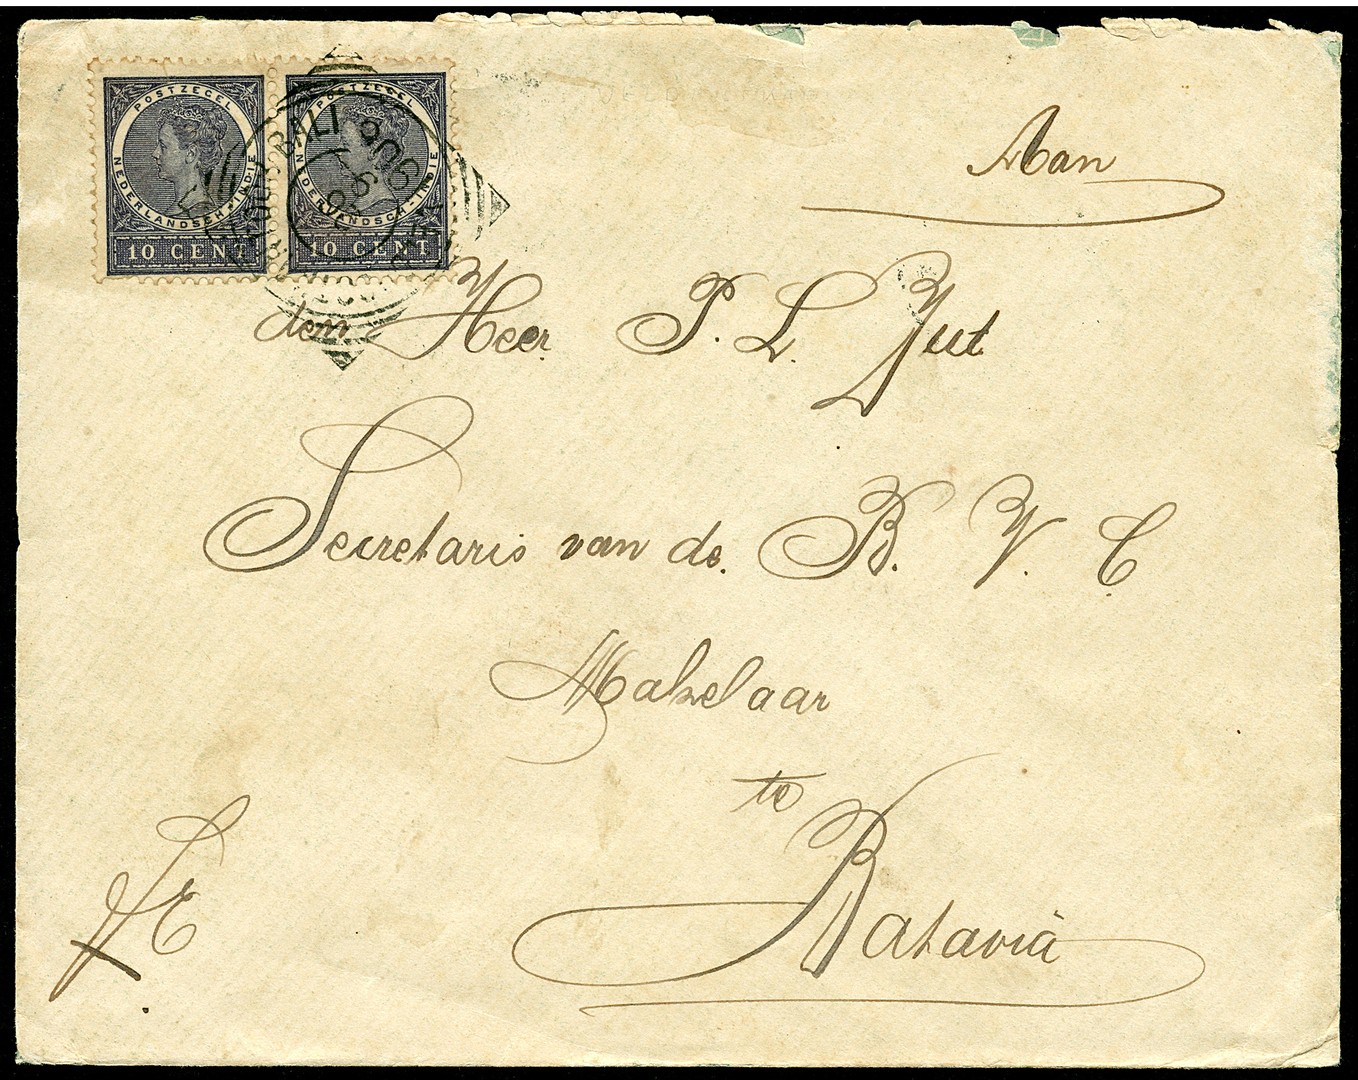 POSTZEGEL
NEDERLANDSCH-INDIE
10 CENT
POSTZEGEL
NEDERLANDSCH-INDIE
10 CENT
BALI
Aan
den Heer P. L. Jut
Secretaris van de B. V. C
Makelaar
te
Batavia